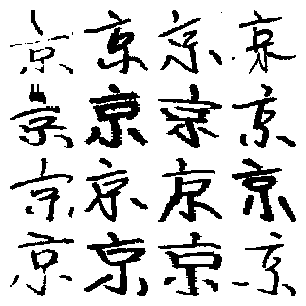 京京京京
京京京京
京京京京
京京京京